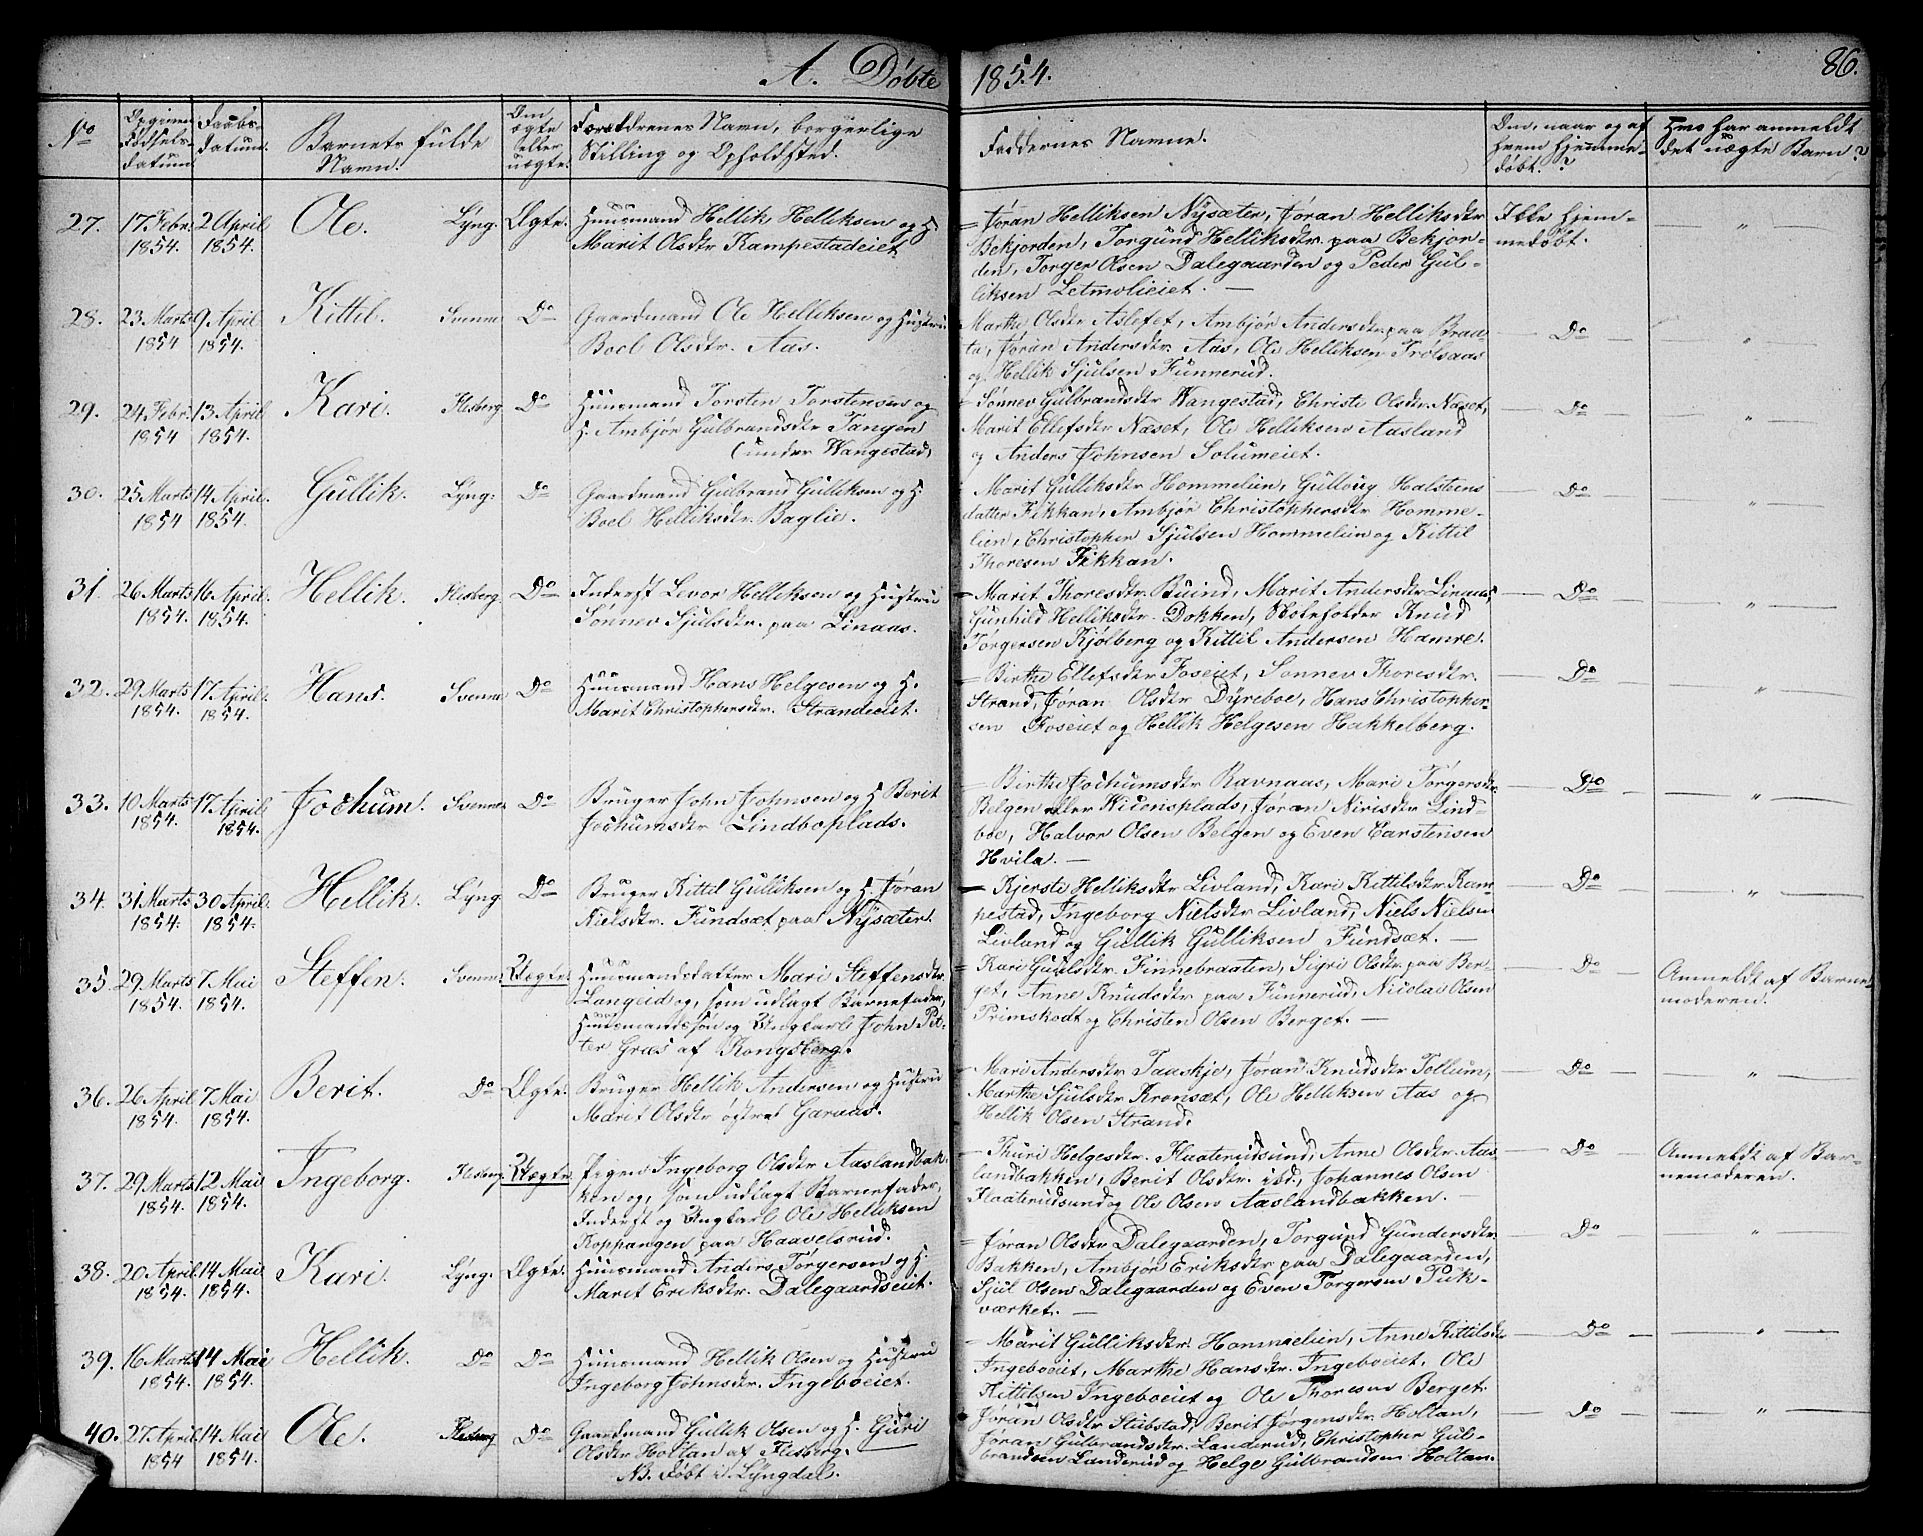 A. Døbte 1854. 86.
No
Opgiven Fødsels-datum.
Daabs-datum.
Barnets fulde Navn.
Om ægte eller uægte.
Forældrenes Navn, borgerlige Stilling og Opholdsted.
Faddernes Navne.
Om, naar og af hvem hjemme-døbt.?
Hvo har anmeldt det uægte Barn?
27. 17 Febr. 1854. 2 April 1854. Ole. Lyng. Ægte.
Huusmand Hellik Helliksen og H.
Marit Olsdtr Kampestadeiet
= Jøran Helliksen Nysæter, Jøran Helliksdtr
Bekjorden, Torgund Helliksdtr. paa Bekjor-
den, Torger Olsen Dalegaarden og Peder Gul-
liksen Letmolieiet. —
Ikke hjem-
medøbt.
— " —
28. 23 Marts 1854 9 April 1854. Kittil. Svenne Do
Gaardmand Ole Helliksen og Hustru
Boel Olsdtr. Aas.
Marthe Olsdtr Aslefet, Ambjør Andersdtr paa Braa-
ta, Jøran Andersdtr. Aas, Ole Helliksen Trolsaas
og Hellik Sjulsen Funnerud.
— Do —
— " —
29. 24 Febr. 1854 13 April 1854. Kari. Flesberg. Do
Huusmand Torsten Torstensen og
H. Ambjør Gulbrandsdtr Tangen
(under Wangestad)
- Sønnev Gulbrandsdtr Wangestad, Christi Olsdtr. Næset,
Marit Ellefsdtr Næset, Ole Helliksen Aasland
og Anders Johnsen Solumeiet.
— Do —
"
30. 25 Marts 1854 14 April 1854. Gullik. Lyng: Do
Gaardmand Gulbrand Gulliksen og H.
Boel Helliksdtr. Baglie.
- Marit Gulliksdtr Hommelien, Gulloug Halsteens
datter Fikkan, Ambjør Christophersdtr Homme-
lien, Christopher Sjulsen Hommelien og Kittil
Thoresen Fikkan.
— Do —
— " —
31. 26 Marts 1854. 16 April 1854. Hellik. Flesberg. Do
Inderst Levor Helliksen og Hustru
Sønnev Sjulsdtr. paa Linaas.
— Marit Thoresdtr Buind, Marit Andersdtr Linaas,
Gunhild Helliksdtr. Dokken, Skoleholder Knud
Torgersen Kjølberg og Kittil Andersen Hamre.
— Do —
— " —
32. 29 Marts 1854. 17 April 1854. Hans. Svenne Do
Huusmand Hans Helgesen og H.
Marit Christophersdtr. Strandeiet.
— Birthe Ellefsdtr Foseiet, Sønnev Thoresdtr.
Strand, Jøran Olsdtr Dyreboe, Hans Christopher-
sen Foseiet og Hellik Helgesen Hakkelberg.
— Do —
— " —
33. 10 Marts 1854. 17 April 1854. Jochum. Svenne Do
Bruger John Johnsen og H Berit
Jochumsdtr Lindboplads.
— Birthe Jochumsdtr Ravnaas, Mari Torgersdtr.
Belgen eller Kidonsplads, Jøran Nirisdtr Lind-
boe, Halvor Olsen Belgen og Even Carstensen
Hvila. —
— Do —
— " —
34. 31 Marts 1854. 30 April. 1854. Hellik. Lyng. Do
Bruger Kittil Gulliksen og H. Jøran
Nielsdtr. Fundsæt paa Nysæter.
— Kjersti Helliksdtr Livland, Kari Kittilsdtr Kam-
pestad, Ingeborg Nielsdtr Livland, Niels Nielsen
Livland og Gullik Gulliksen Fundsæt. —
— Do —
— " —
35. 29 Marts 1854. 7 Mai 1854. Steffen. Svenne. Uægte.
Huusmandsdatter Mari Steffensdtr.
Langeid og, som udlagt Barnefader,
Huusmandssøn og Ungkarl John Pet-
ter Græs af Kongsberg.
= Kari Gulsdtr. Finnebraaten, Sigri Olsdtr. paa Ber-
get, Anne Knudsdtr paa Funnerud, Nicolai Olsen
Primskodt og Christen Olsen Berget. —
— Do
Anmeldt af Barne-
moderen.
36. 26 April 1854. 7 Mai 1854. Berit. Do Ægte.
Bruger Hellik Andersen og Hustru
Marit Olsdtr østre Garaas.
— Mari Andersdtr Taaskje, Jøran Knudsdtr Tollum,
Marthe Sjulsdtr Kronsæt, Ole Helliksen Aas og
Hellik Olsen Strand.
— Do —
— " —
37. 29 Marts 1854. 12 Mai 1854. Ingeborg. Flesberg. Uægte.
Pigen Ingeborg Olsdtr Aaslandbak-
ken og, som udlagt Barnefader,
Inderst og Ungkarl Ole Helliksen
Koppangen paa Haavelsrud.
— Thuri Helgesdtr. Flaaterudsund, Anne Olsdtr. Aas
landbakken, Berit Olsdtr. ibd., Johannes Olsen
Flaaterudsund og Ole Olsen Aaslandbakken. —
— Do —
Anmeldt af Bar-
nemoderen.
38. 20 April 1854. 14 Mai 1854. Kari. Lyng. Ægte.
Huusmand Anders Torgersen og H.
Marit Eriksdtr. Dalegaardseiet.
= Jøran Olsdtr Dalegaarden, Torgund Gundersdtr.
Bakken, Ambjør Eriksdtr paa Dalegaarden,
Sjul Olsen Dalegaarden og Even Torgersen Puk-
værket. —
— Do
"
39. 16 Marts 1854. 14 Mai 1854. Hellik. Do Do
Huusmand Hellik Olsen og Hustru
Ingeborg Johnsdtr. Ingeboeiet.
— Marit Gulliksdtr. Hommelien, Anne Kittilsdtr
Ingeboeiet, Marthe Hansdtr. Ingeboeiet, Ole
Kittilsen Ingeboeiet og Ole Thoresen Berget.
— Do —
— " —
40. 27 April 1854 14 Mai 1854. Ole. Flesberg Do
Gaardmand Gullik Olsen og H. Guri
Olsdtr Holtan af Flesberg.
NB. Døbt i Lyngdal.
Jøran Olsdtr Stubstad, Berit Jørgensdtr. Holtan,
Jøran Gulbrandsdtr. Landerud, Christopher Gul-
brandsen Landerud og Helge Gulbrandsen Holtan.
— Do —
— " —